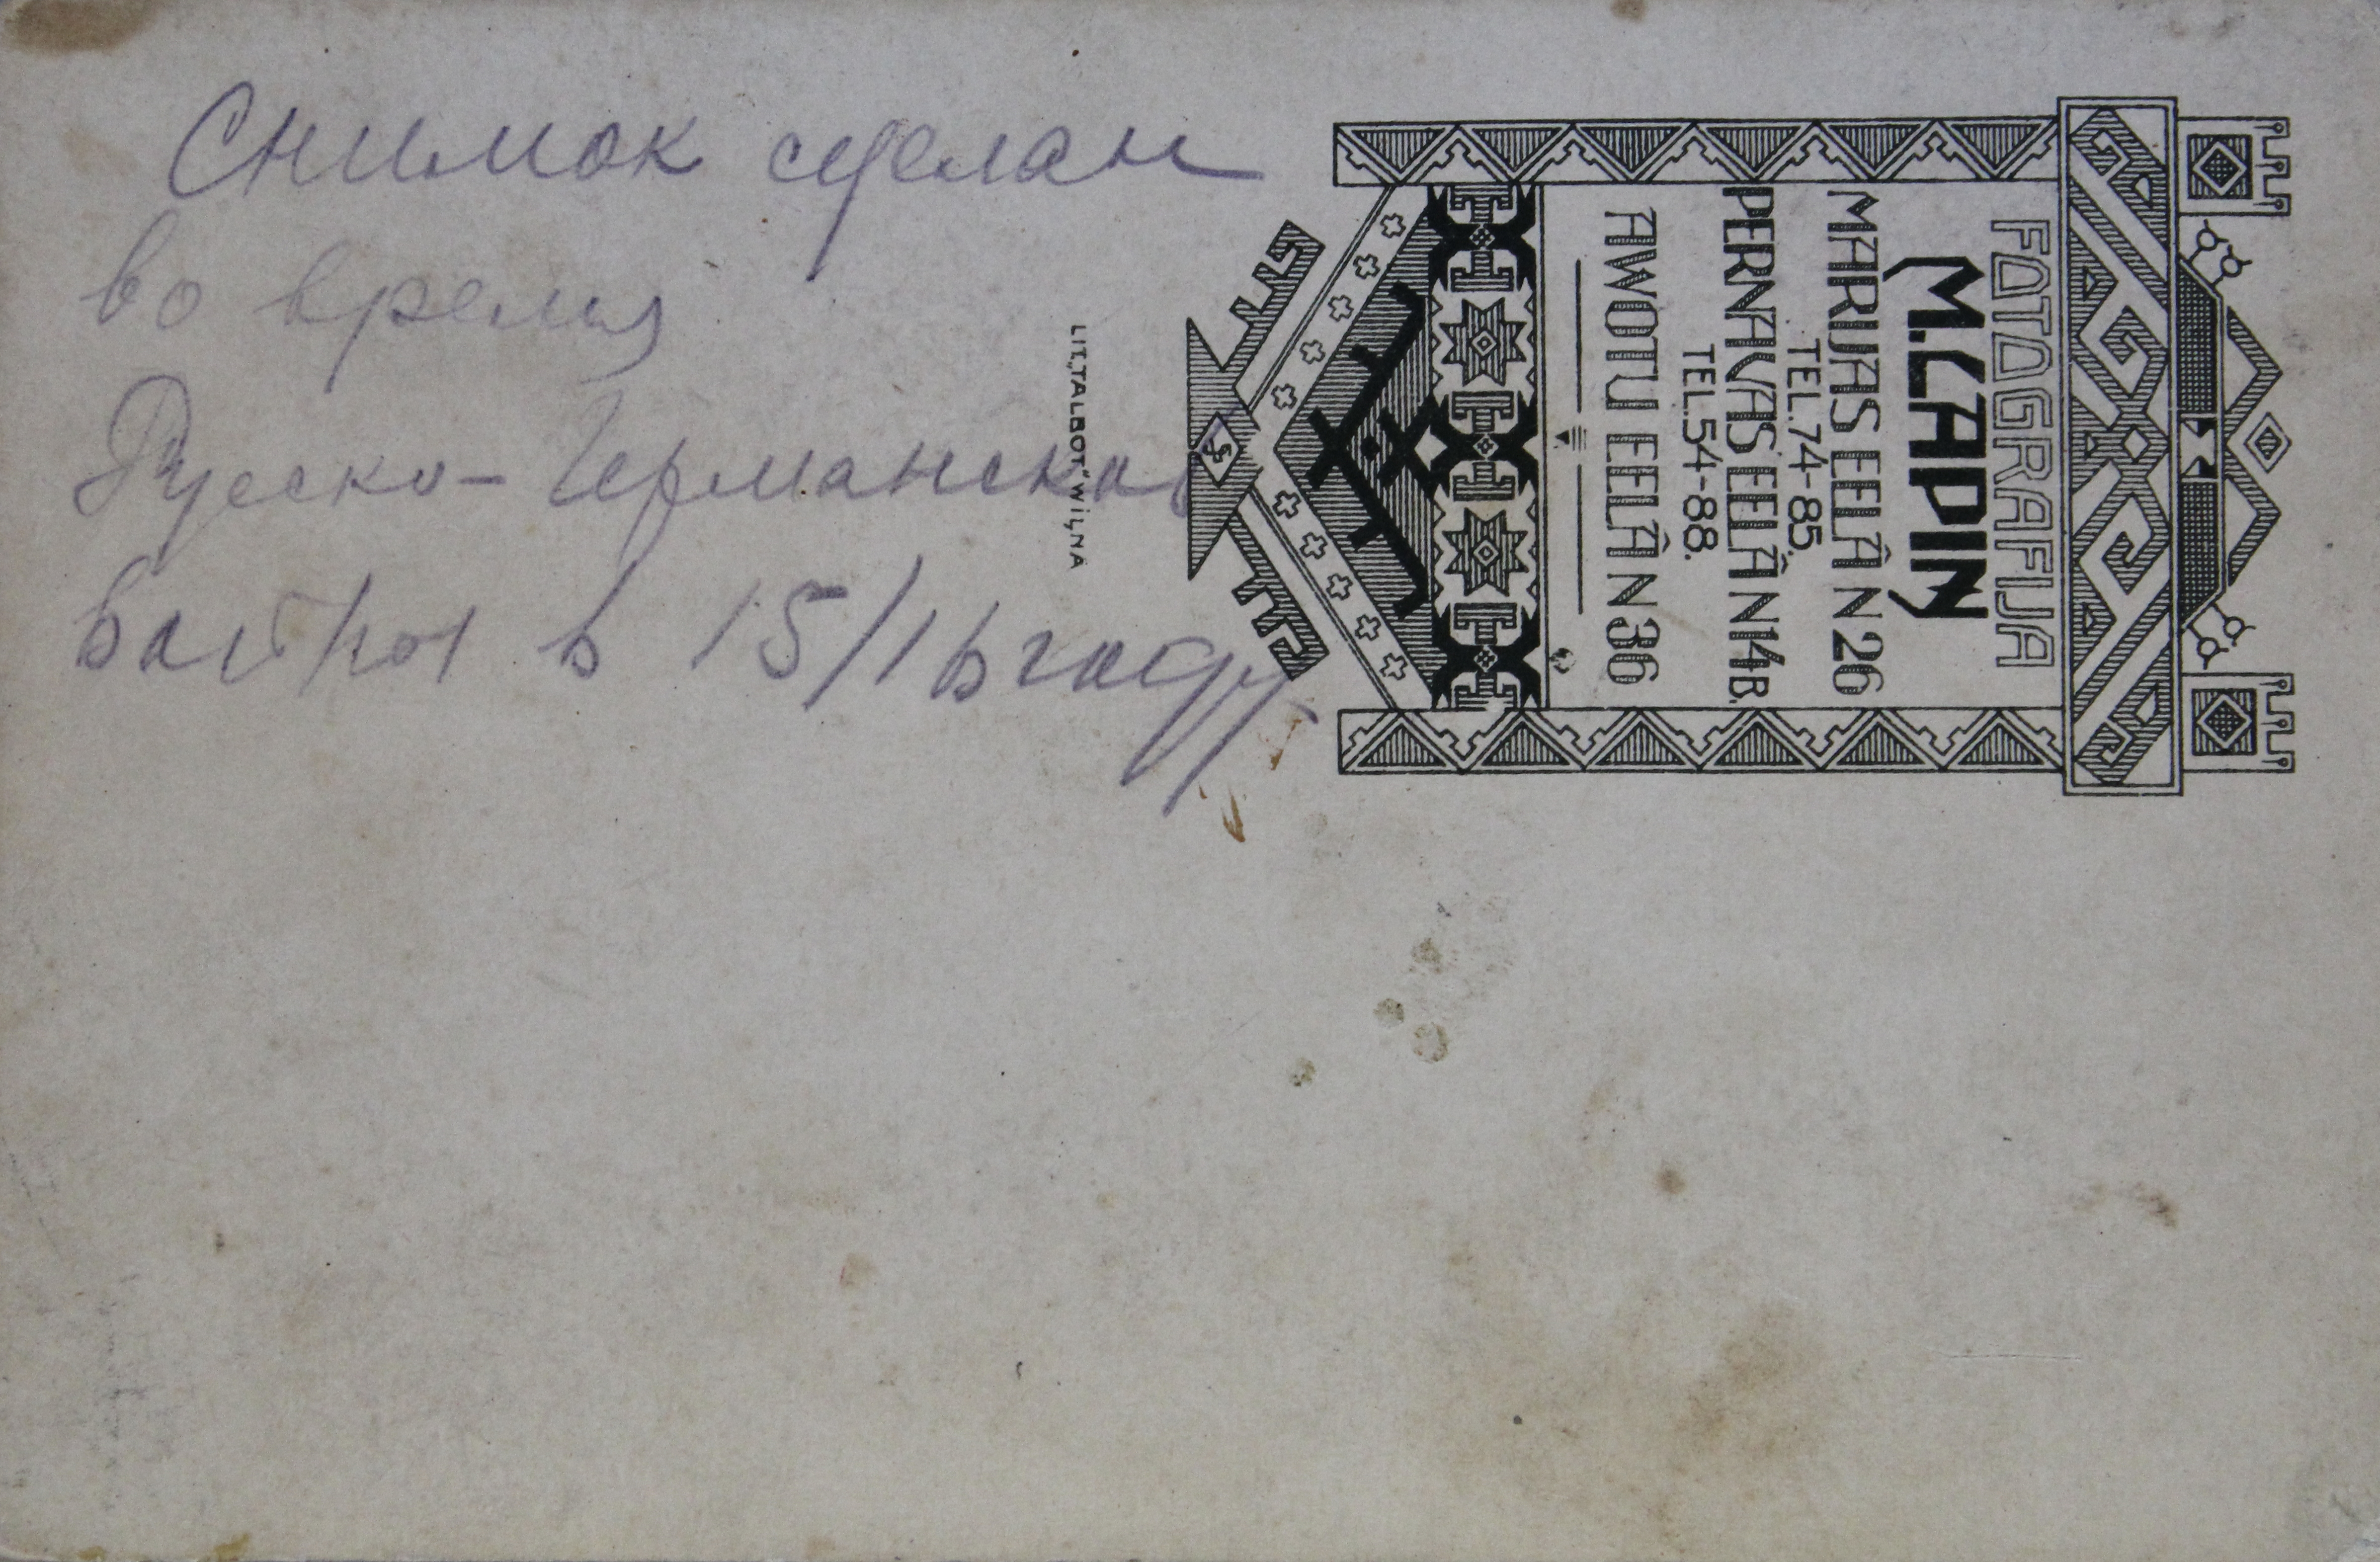 Снимок сделан
во время
Русско-Германской
войны в 15/16 году
FOTOGRAFIJA
M. LAPIN
MARIJAS EELÂ N 26
TEL. 74-85.
PERNAVAS EELÂ N 14 B.
TEL. 54-88.
AWOTU EELÂ N 36
LIT. „TALBOT" WILNA